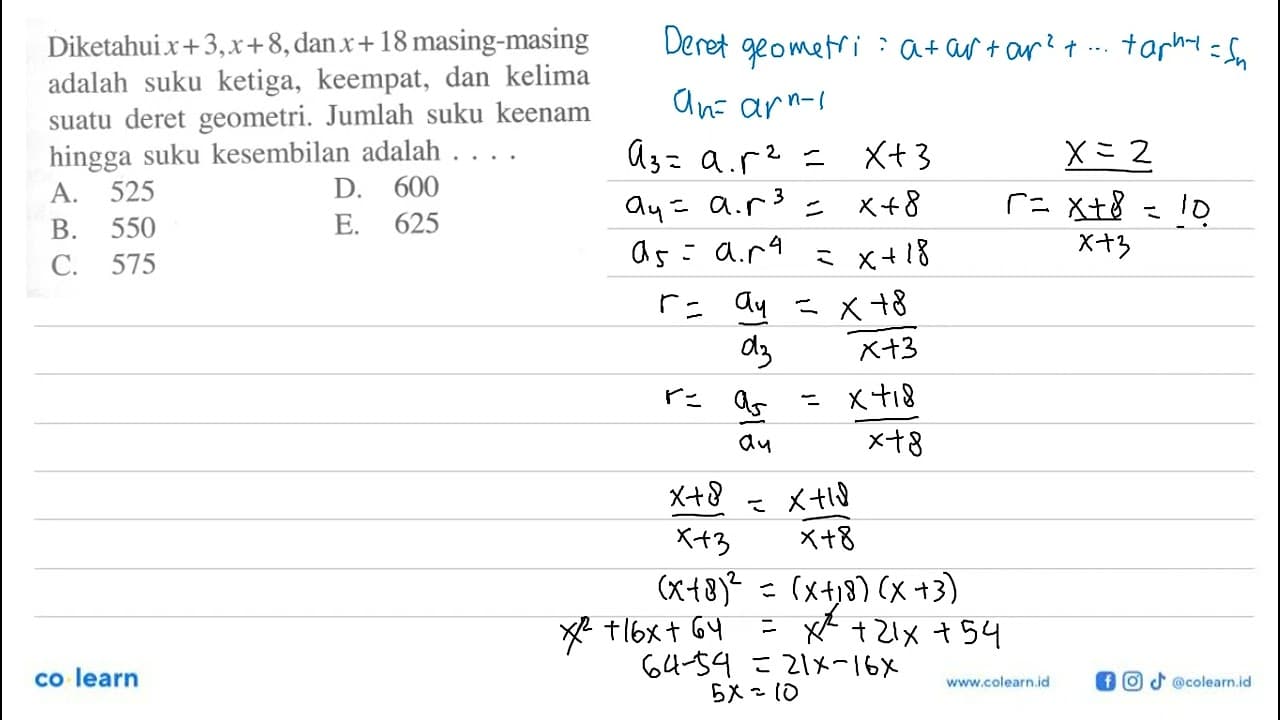 Diketahui x + 3, x + 8, dan x + 18 masing-masing
adalah suku ketiga, keempat, dan kelima
suatu deret geometri. Jumlah suku keenam
hingga suku kesembilan adalah . . . .
A. 525 D. 600
B. 550 E. 625
C. 575
Deret geometri : a + ar + ar² + ... + arⁿ⁻¹ = Sₙ
aₙ = arⁿ⁻¹
a₃ = a.r² = x+3
a₄ = a.r³ = x+8
a₅ = a.r⁴ = x+18
r = a₄/a₃ = x+8/x+3
r = a₅/a₄ = x+18/x+8
x+8/x+3 = x+18/x+8
(x+8)² = (x+18)(x+3)
x² + 16x + 64 = x² + 21x + 54
64-54 = 21x-16x
5x = 10
x = 2
r = x+8/x+3 = 10
co learn
www.colearn.id @colearn.id